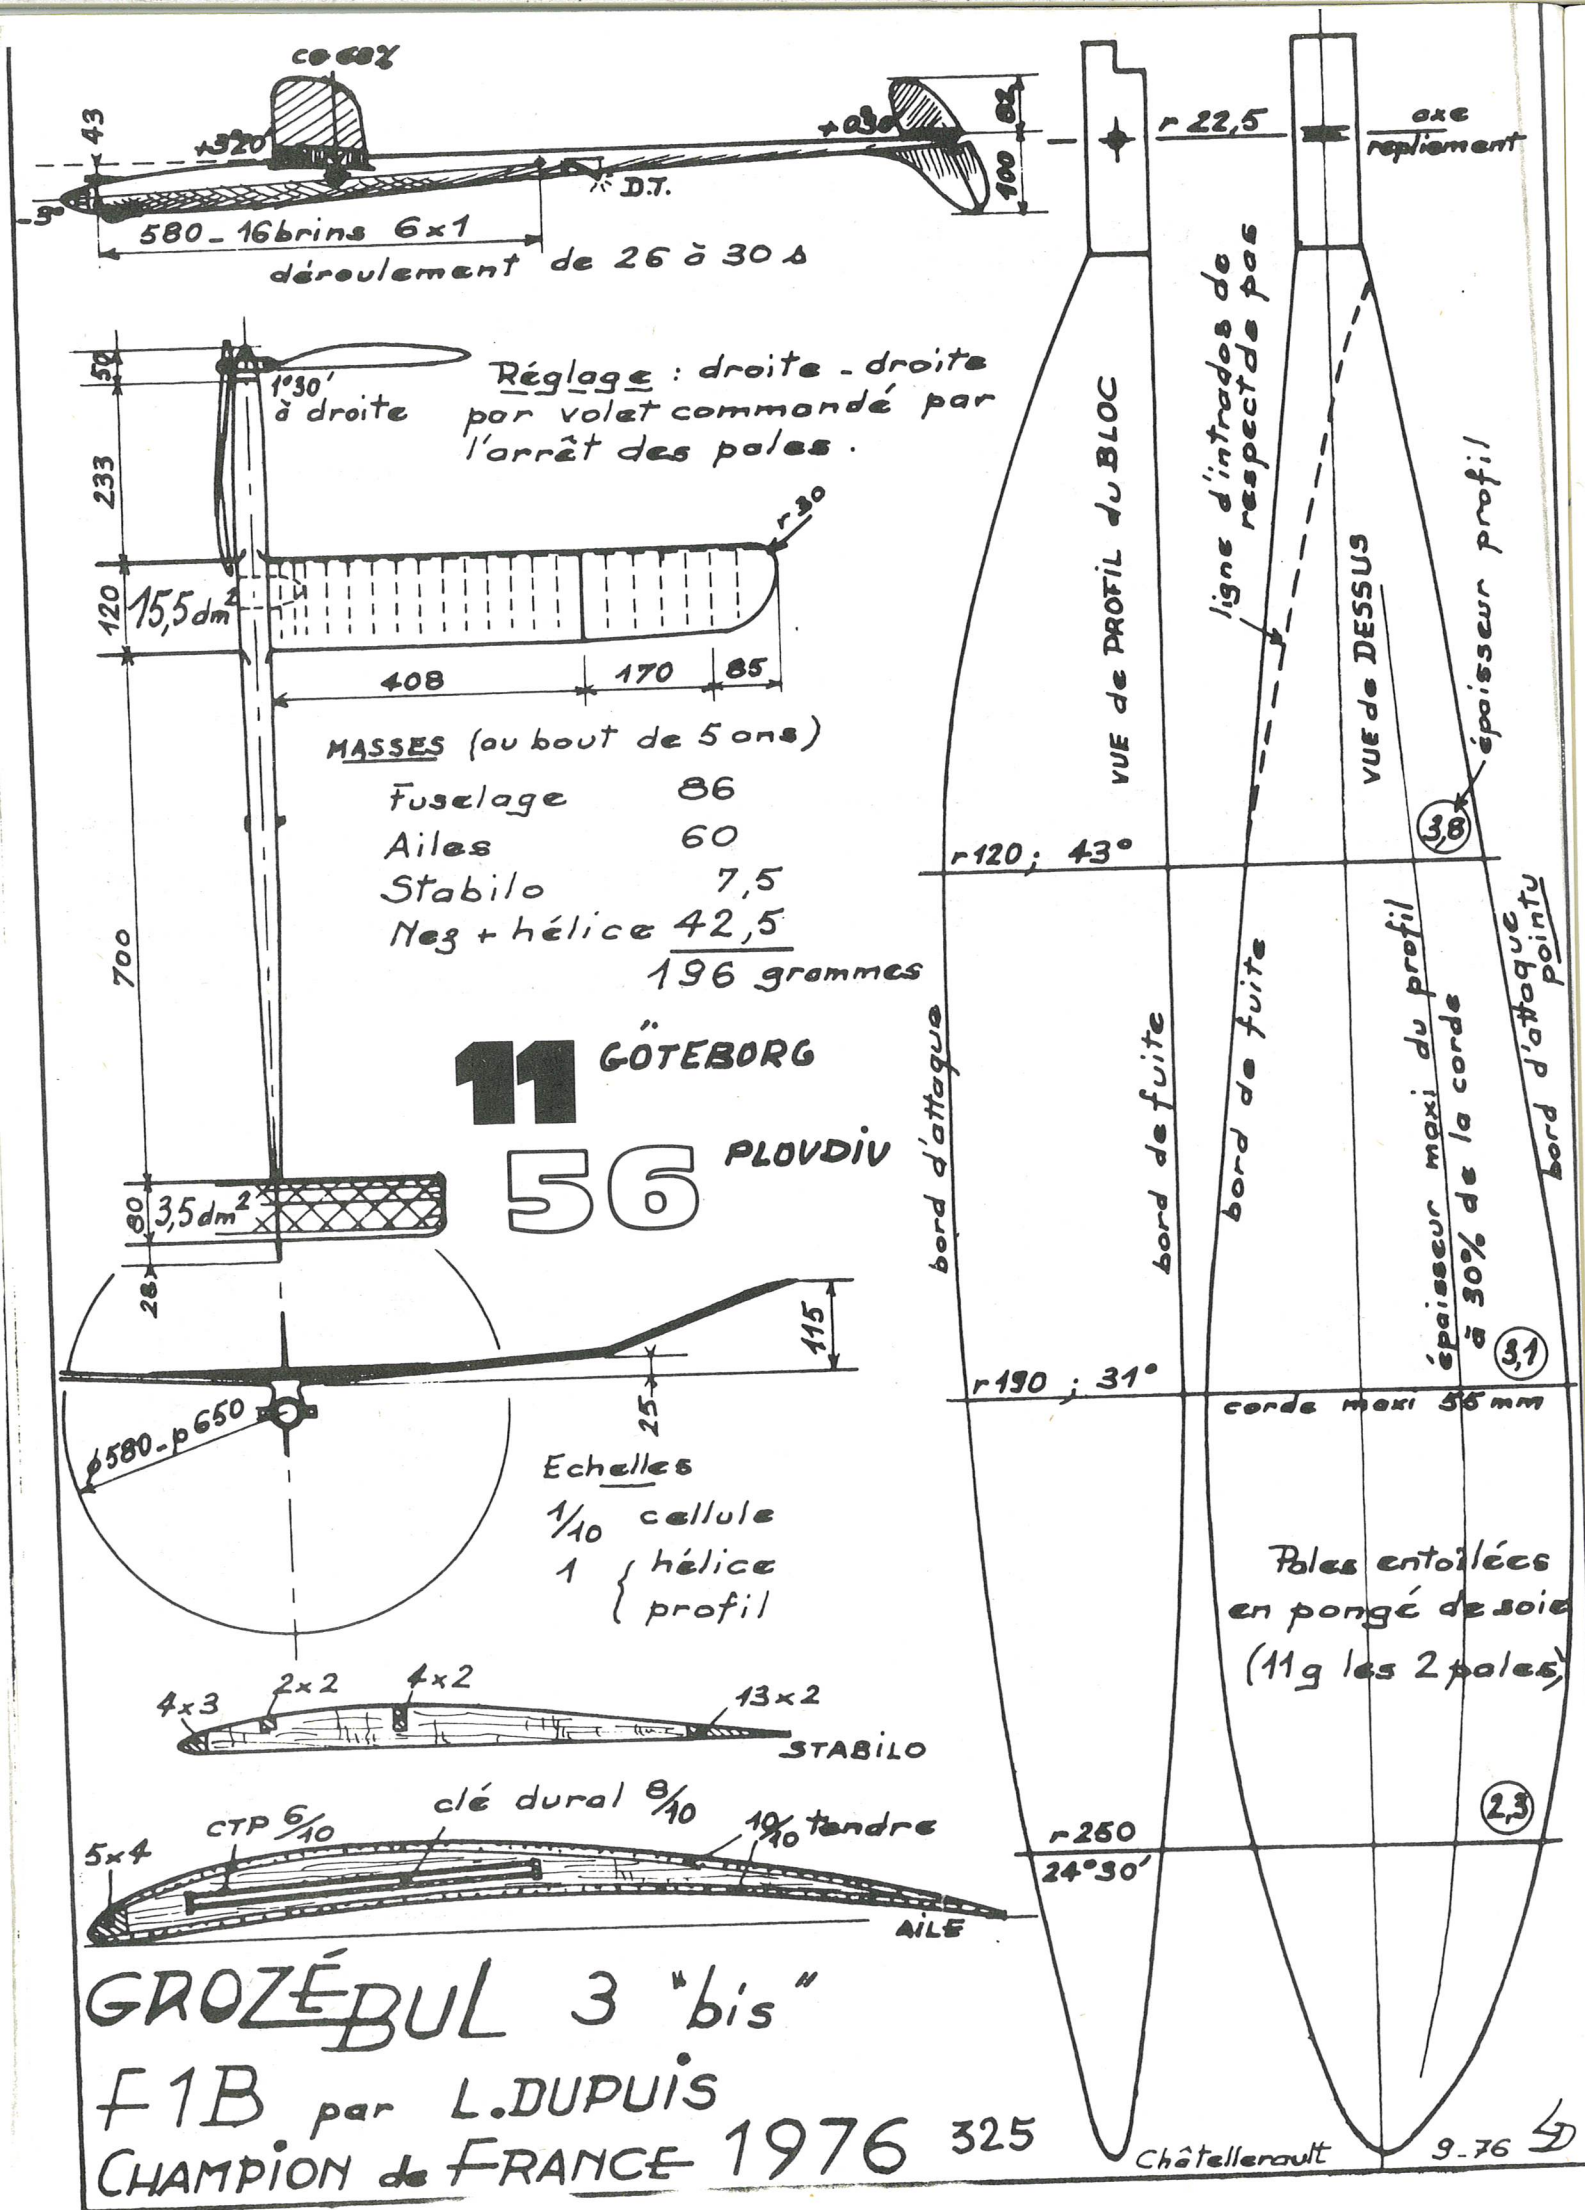 CG 68%
43
+3°20'
+0°30'
82
100
-3°
D.T.
580 - 16 brins 6x1
déroulement de 26 à 30 s
50
1°30'
à droite
Réglage : droite - droite
par volet commandé par
l'arrêt des pales.
233
r 30
120
15,5 dm²
408
170
85
MASSES (au bout de 5 ans)
Fuselage 86
Ailes 60
Stabilo 7,5
Nez + hélice 42,5
196 grammes
700
11 GÖTEBORG
56 PLOVDIV
80
3,5 dm²
28
115
25
ϕ580 - p 650
Echelles
1/10 cellule
1 { hélice
profil
4x3
2x2
4x2
13x2
STABILO
5x4
CTP 6/10
clé dural 8/10
10/10 tendre
AILE
GROZÉBUL 3 "bis"
F1B par L.DUPUIS
CHAMPION de FRANCE 1976
325
r 22,5
axe
repliement
ligne d'intrados de
respect de pas
VUE de PROFIL du BLOC
VUE de DESSUS
épaisseur profil
3,8
r 120 ; 43°
bord d'attaque
bord de fuite
bord de fuite
épaisseur maxi du profil
à 30% de la corde
bord d'attaque
pointu
3,1
r 190 ; 31°
corde maxi 55 mm
Pales entoilées
en pongé de soie
(11g les 2 pales)
2,3
r 260
24°30'
Châtellerault
9-76 LD